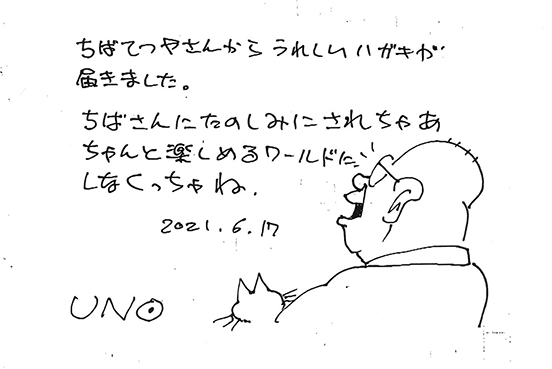 ちばてつやさんから うれしいハガキが
届きました。
ちばさんにたのしみにされちゃあ
ちゃんと楽しめるワールドに
しなくっちゃね.
2021.6.17
UNO